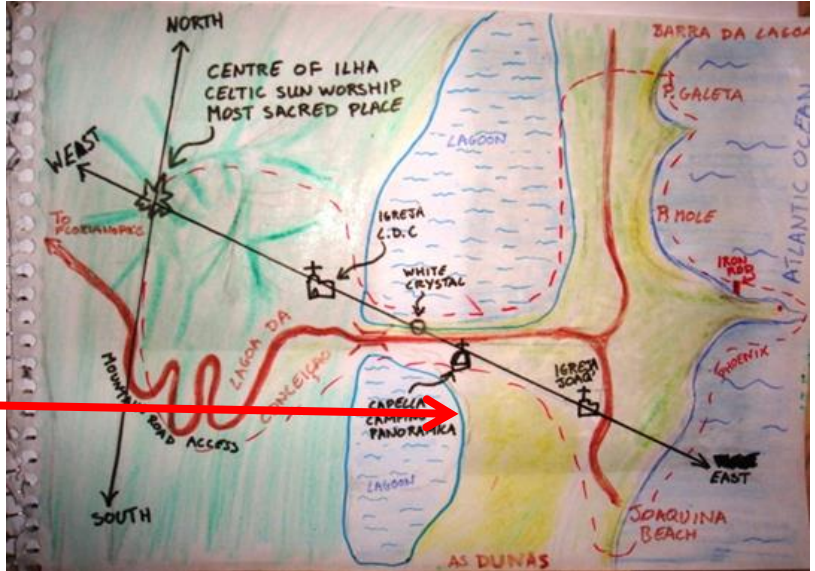 NORTH
CENTRE OF ILHA
CELTIC SUN WORSHIP
MOST SACRED PLACE
WEAST
TO
FLORIANOPOLIS
BARRA DA LAGOA
P. GALETA
LAGOON
ATLANTIC OCEAN
P. MOLE
IGREJA
L.D.C
WHITE
CRYSTAL
IRON
ROD
PHOENIX
LAGOA DA
CONCEIÇÃO
MOUNTAIN ROAD ACCESS
CAPELLA
CAMPING
PANORAMICA
IGREJA
JOAQ'
LAGOON
EAST
SOUTH
JOAQUINA
BEACH
AS DUNAS